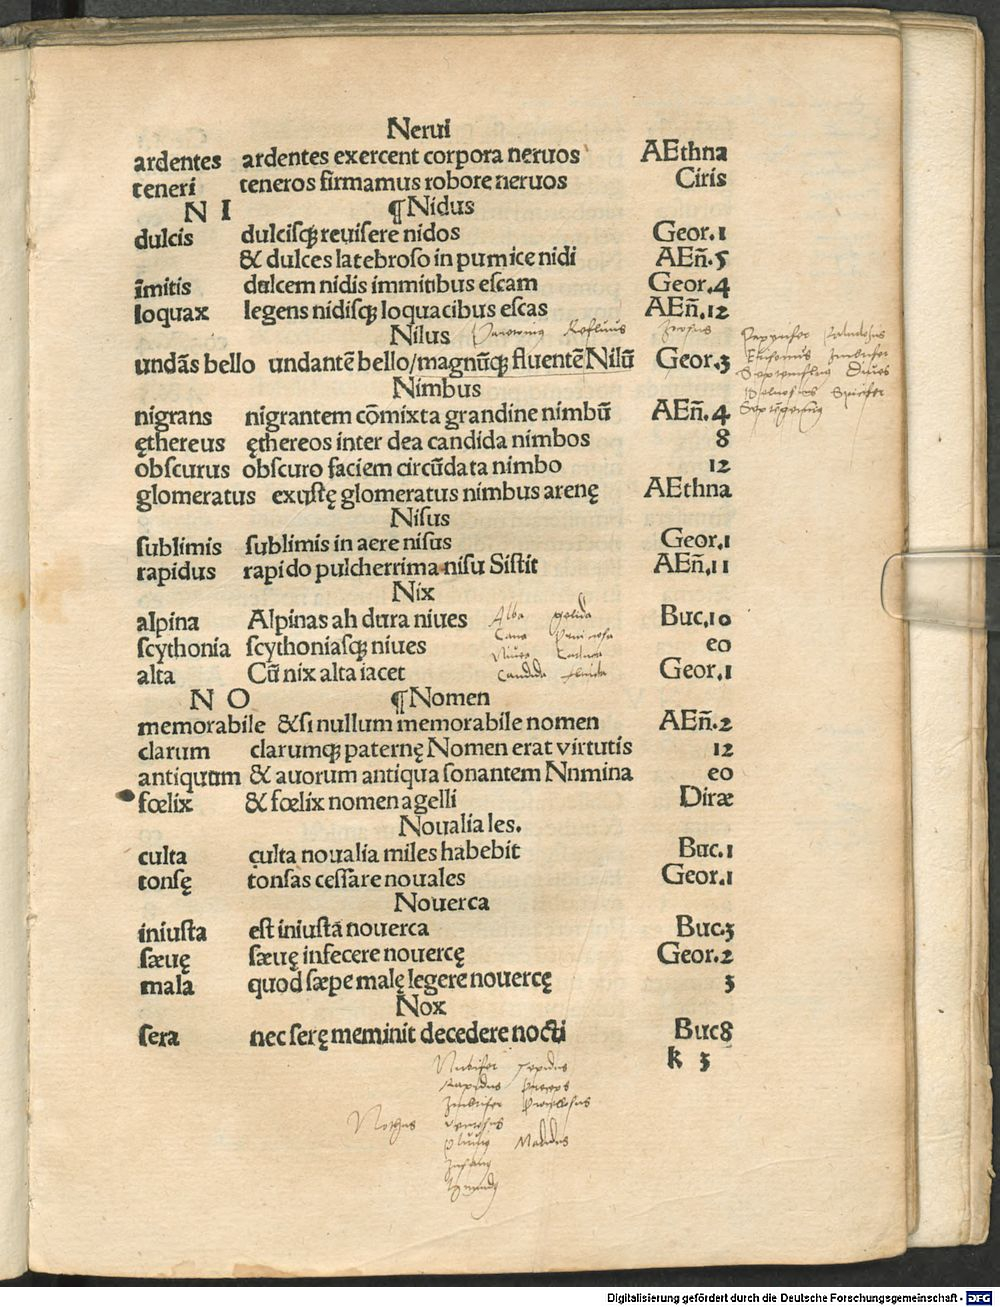 Nerui
ardentes ardentes exercent corpora neruos AEthna
teneri teneros firmamus robore neruos Ciris
N I ¶Nidus
dulcis dulcisq; reuisere nidos Geor.1
& dulces latebroso in pumice nidi AEñ.5
īmitis dulcem nidis immitibus escam Geor.4
loquax legens nidisq; loquacibus escas AEñ.12
Nilus Refluus
undās bello undantē bello/magnūq; fluentē Nilū Geor.3
Nimbus
nigrans nigrantem cōmixta grandine nimbū AEñ.4
ęthereus ęthereos inter dea candida nimbos 8
obscurus obscuro faciem circūdata nimbo 12
glomeratus exustę glomeratus nimbus arenę AEthna
Nisus
sublimis sublimis in aere nisus Geor.1
rapidus rapido pulcherrima nisu Sistit AEñ.11
Nix
alpina Alpinas ah dura niues Buc.10
Alba gelida
scythonia scythoniasq; niues eo
Cana
alta Cū nix alta iacet Geor.1
Candida
N O ¶Nomen
memorabile & si nullum memorabile nomen AEñ.2
clarum clarumq; paternę Nomen erat virtutis 12
antiquum & auorum antiqua sonantem Nnmina eo
fœlix & fœlix nomen agelli Diræ
Noualia les.
culta culta noualia miles habebit Buc.1
tonsę tonsas cessare nouales Geor.1
Nouerca
iniusta est iniusta nouerca Buc.3
sæuę sæuę infecere nouercę Geor.2
mala quod sæpe malę legere nouercę 3
Nox
sera nec serę meminit decedere nocti Buc8
k 3
Nubifer Tepidus
Rapidus
Imbrifer Procellosus
Nothus
Madidus
Digitalisierung gefördert durch die Deutsche Forschungsgemeinschaft - DFG